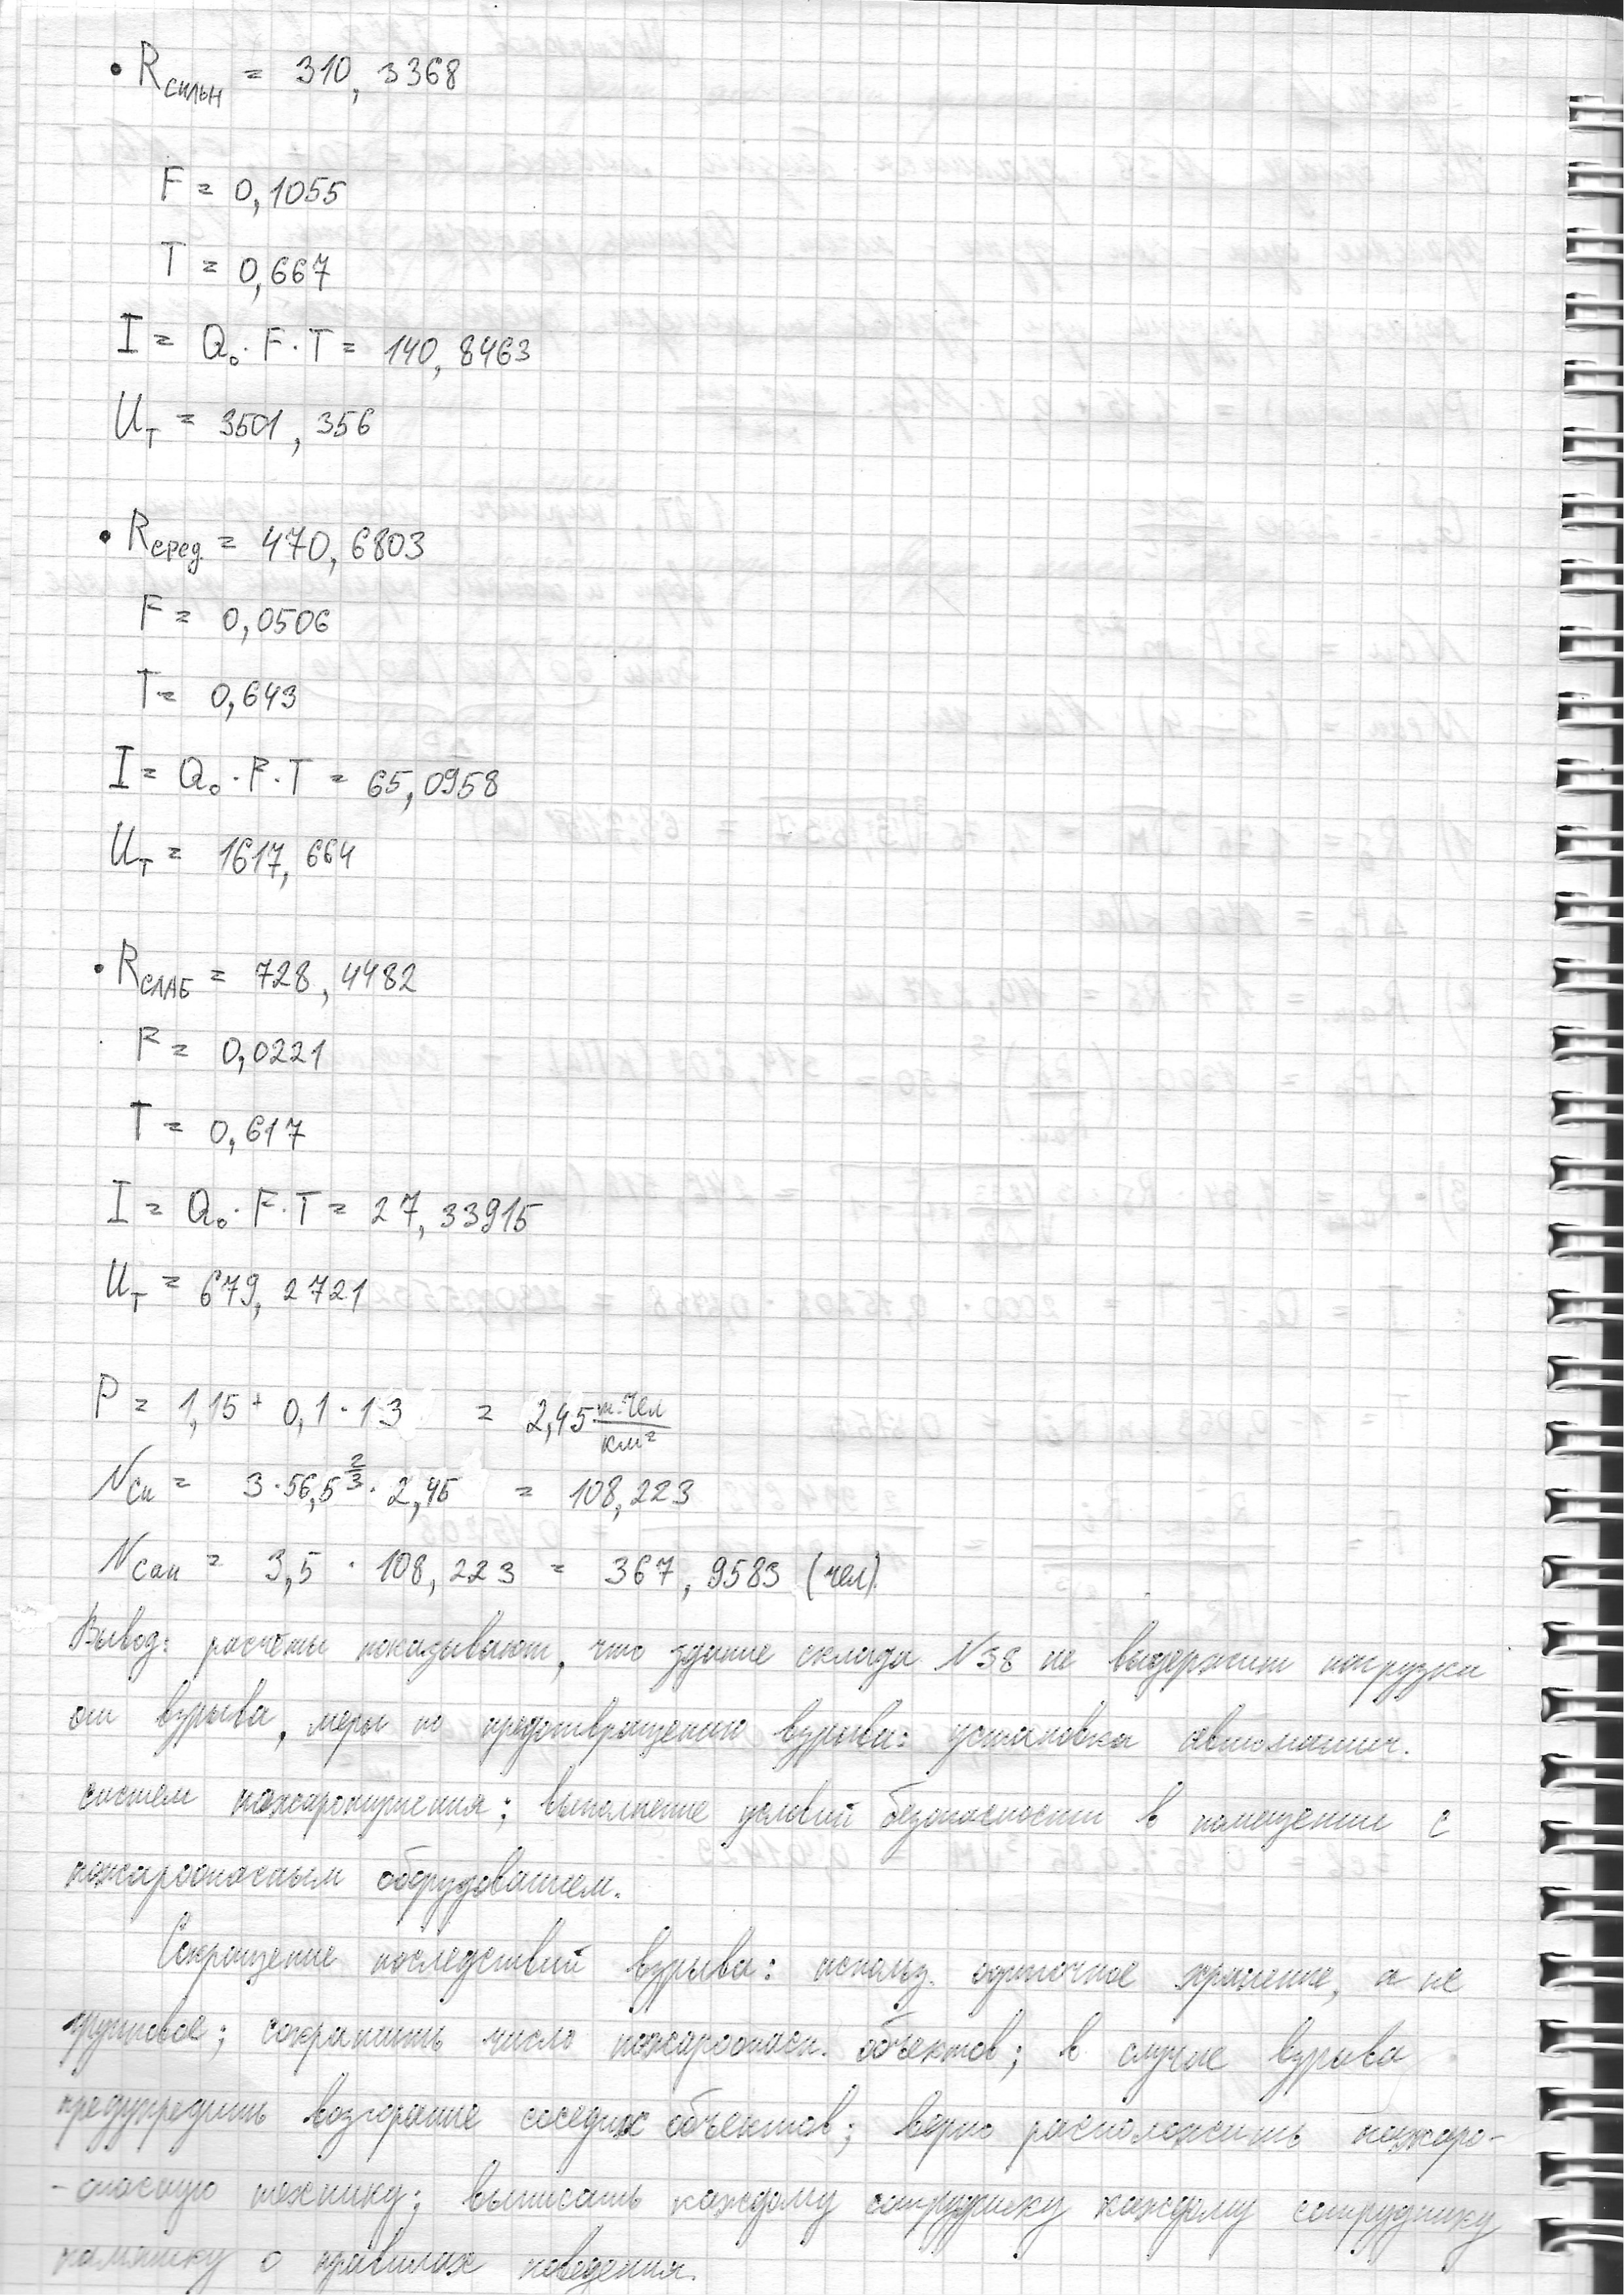 • Rсильн = 310,3368
F = 0,1055
T = 0,667
I = Q₀·F·T = 140,8463
Uт = 3501,356
• Rсред. = 470,6803
F = 0,0506
T = 0,643
I = Q₀·F·T = 65,0958
Uт = 1617,664
• Rслаб = 728,4482
F = 0,0221
T = 0,617
I = Q₀·F·T = 27,33915
Uт = 679,2721
P = 1,15 + 0,1·13 = 2,45 т.чел/км²
Nсп = 3·56,5^(2/3)·2,45 = 108,223
Nсан = 3,5 · 108,223 = 367,9583 (чел).
Вывод: расчёты показывают, что здание склада №38 не выдержит нагрузки
от взрыва, меры по предотвращению взрыва: установка автоматич.
систем пожаротушения; выполнение условий безопасности в помещении с
пожароопасным оборудованием.
Сокращение последствий взрыва: использ. одиночное хранение, а не
групповое; сократить число пожароопасн. объектов; в случае взрыва
предупредить возгорание соседних объектов; верно расположить пожаро-
-опасную технику; выписать каждому сотруднику каждому сотруднику
памятку о правилах поведения.